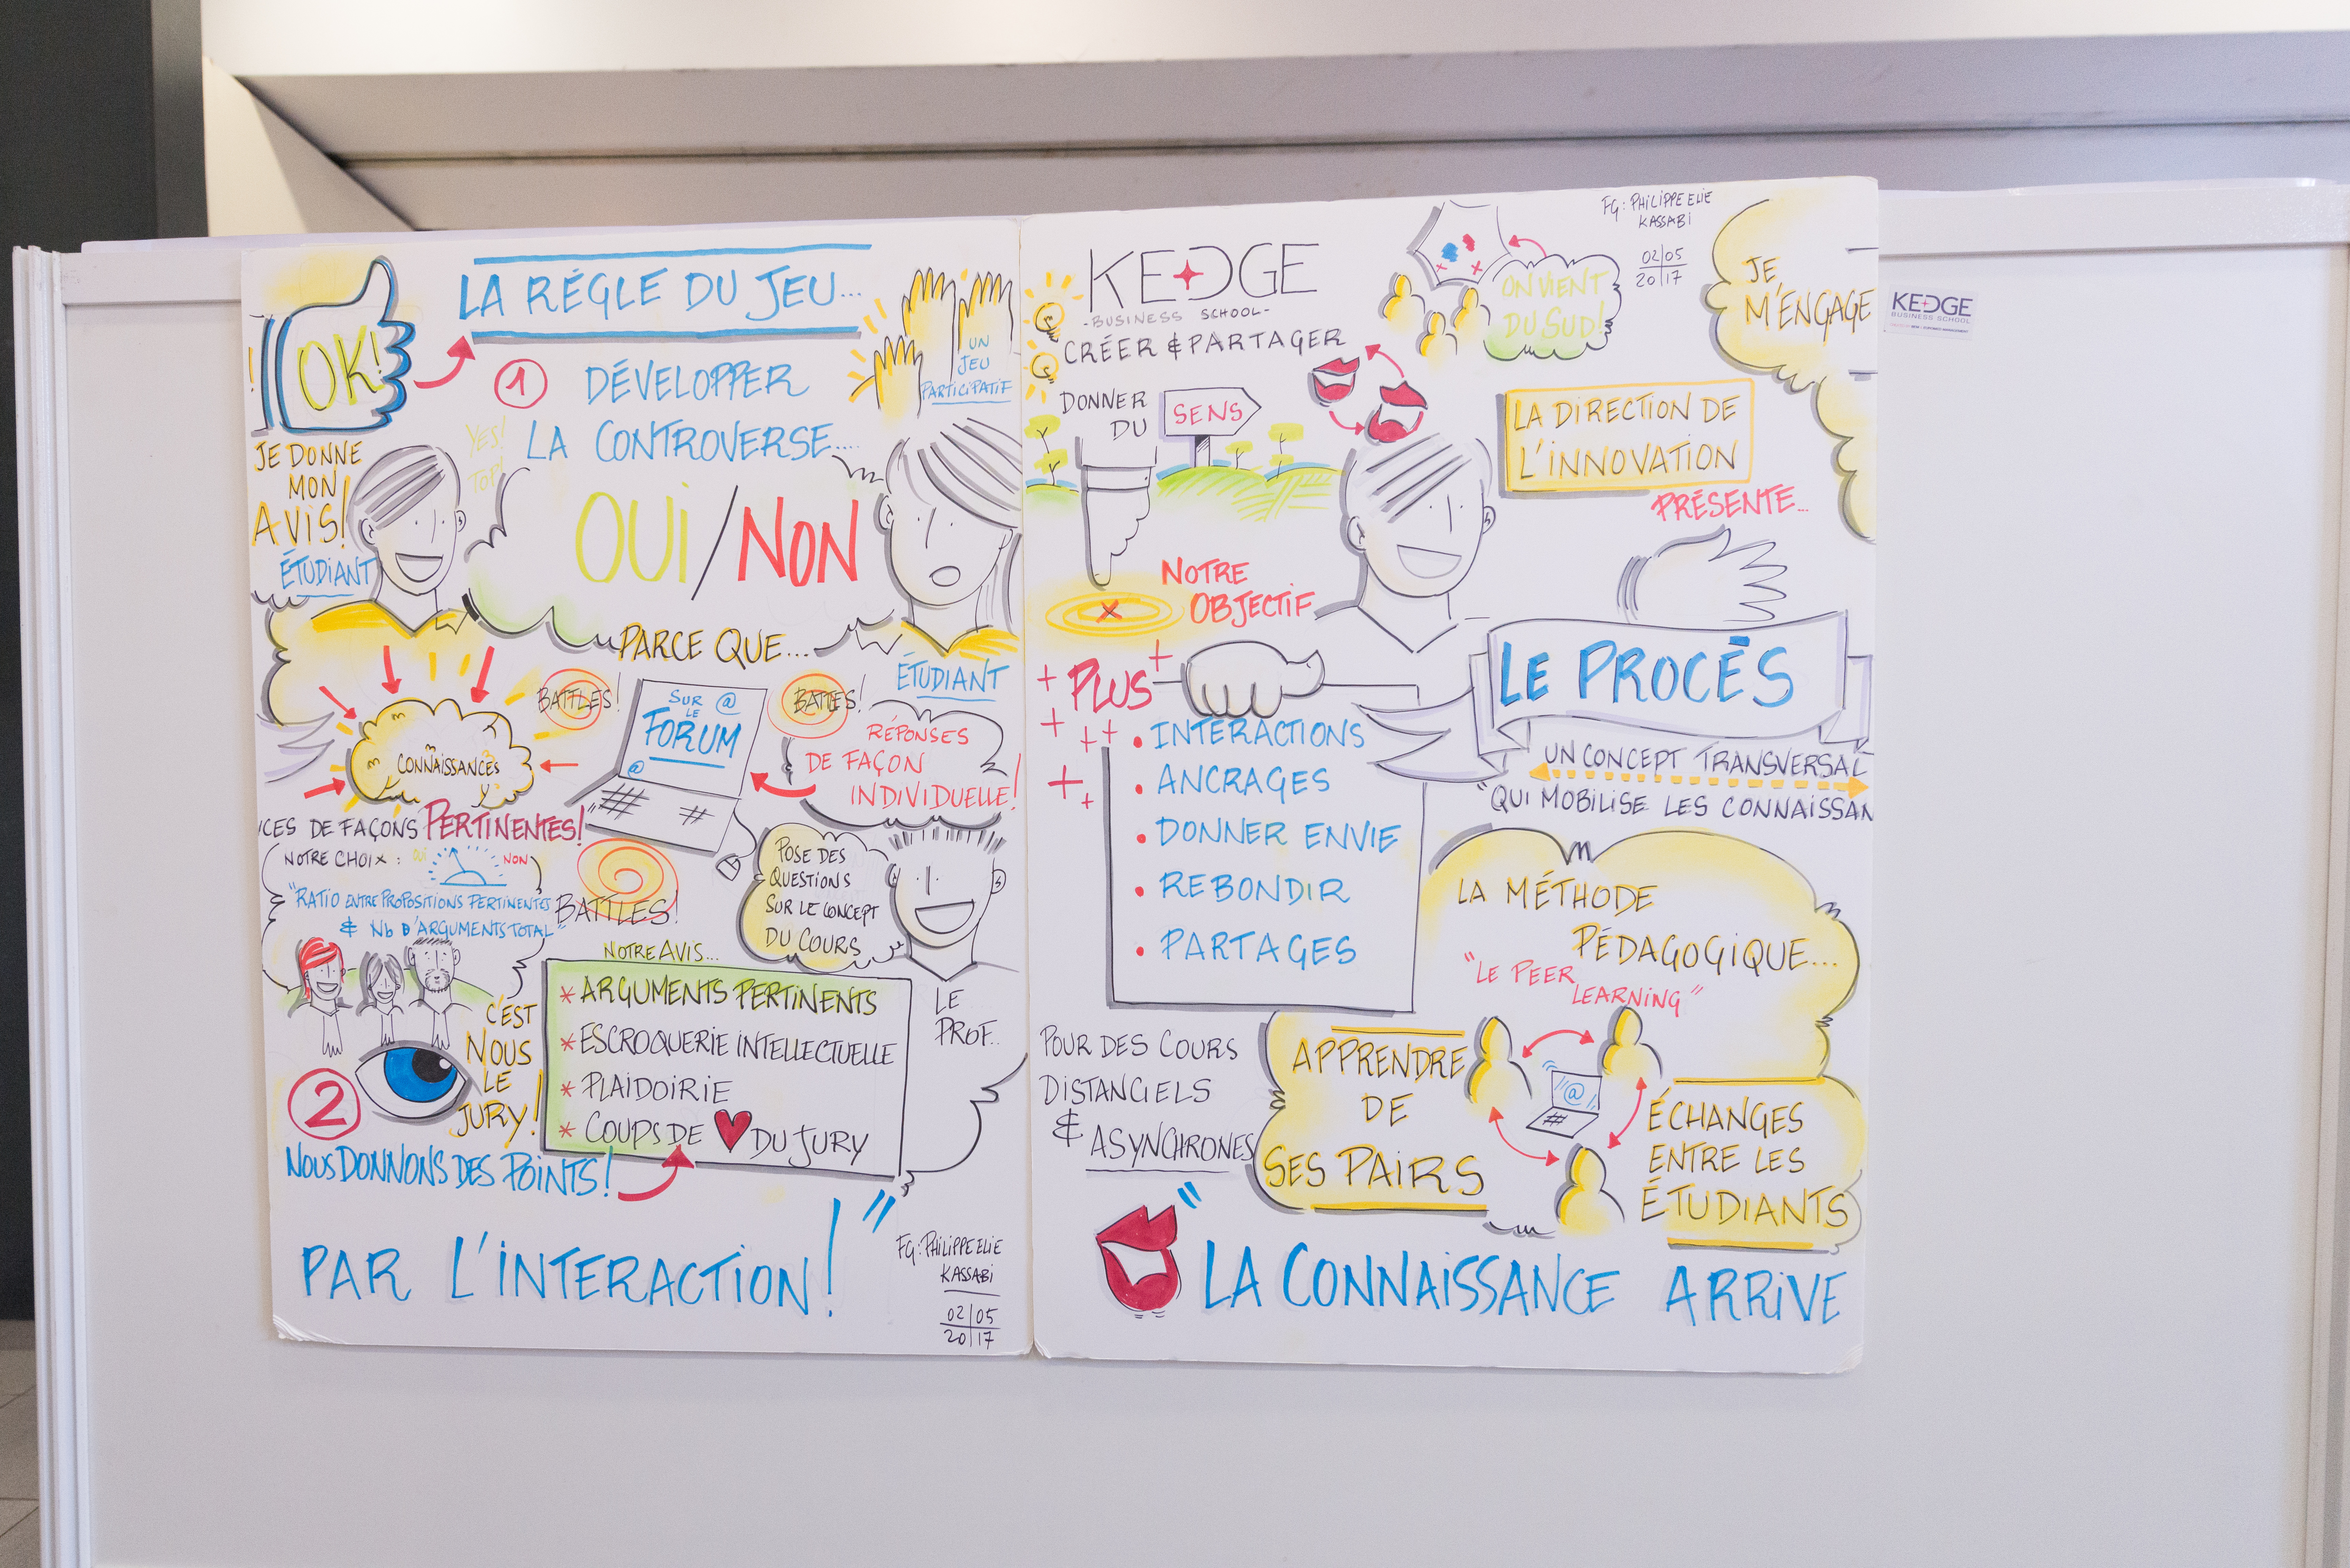 LA RÉGLE DU JEU...
OK!
! 
UN
JEU
PARTICIPATIF
1
DÉVELOPPER
LA CONTROVERSE....
YES!
TOP!
JE DONNE
MON
AVIS!
ÉTUDIANT
OUI/NON
PARCE QUE...
ÉTUDIANT
BATTLES!
SUR @
LE
FORUM
@
BATTLES!
RÉPONSES
DE FAÇON
INDIVIDUELLE!
CONNAISSANCES
CES DE FAÇONS PERTINENTES!
NOTRE CHOIX : OUI NON
"RATIO ENTRE PROPOSITIONS PERTINENTES
& Nb D'ARGUMENTS TOTAL"
BATTLES!
POSE DES
QUESTIONS
SUR LE CONCEPT
DU COURS
LE
PROF..
C'EST
NOUS
LE
JURY!
NOTRE AVIS...
* ARGUMENTS PERTINENTS
* ESCROQUERIE INTELLECTUELLE
* PLAIDOIRIE
* COUPS DE DU JURY
2
NOUS DONNONS DES POINTS!
PAR L'INTERACTION!"
FG: PHILIPPE ELIE
KASSABI
02/05
20 17
KEDGE
-BUSINESS SCHOOL-
CRÉER & PARTAGER
DONNER
DU
SENS
ON VIENT
DU SUD!
FG: PHILIPPE ELIE
KASSABI
02/05
20 17
JE
M'ENGAGE
LA DIRECTION DE
L'INNOVATION
PRÉSENTE...
NOTRE
OBJECTIF
X
LE PROCÉS
UN CONCEPT TRANSVERSAL
"QUI MOBILISE LES CONNAISSAN
+ PLUS +
+ + +
+ +
• INTERACTIONS
• ANCRAGES
• DONNER ENVIE
• REBONDIR
• PARTAGES
LA MÉTHODE
PÉDAGOGIQUE...
"LE PEER
LEARNING"
POUR DES COURS
DISTANCIELS
& ASYNCHRONES
APPRENDRE
DE
SES PAIRS
@
ÉCHANGES
ENTRE LES
ÉTUDIANTS
" LA CONNAISSANCE ARRIVE
KEDGE
BUSINESS SCHOOL